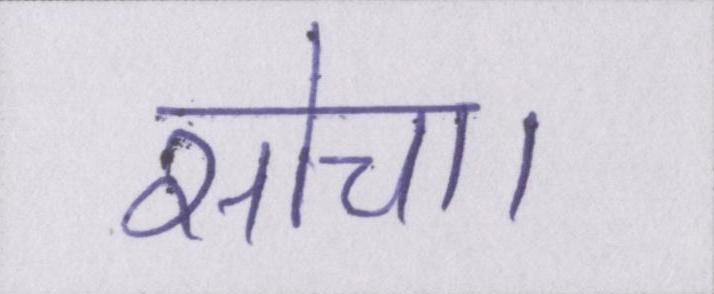 सोचा।